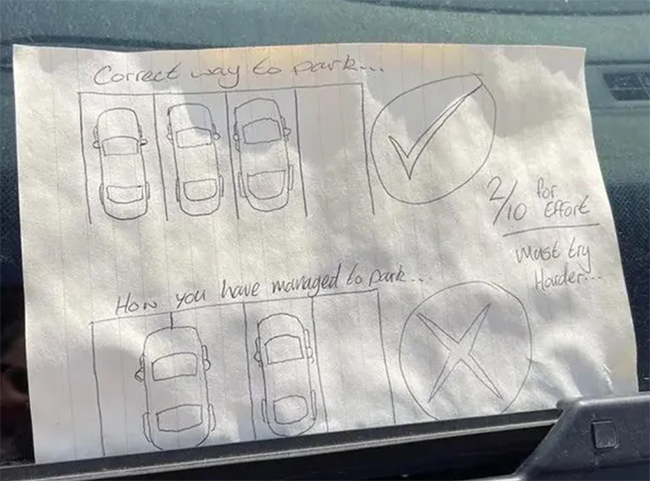 Correct way to park...
2/10 for
Effort
Must try
Harder...
How you have managed to park...